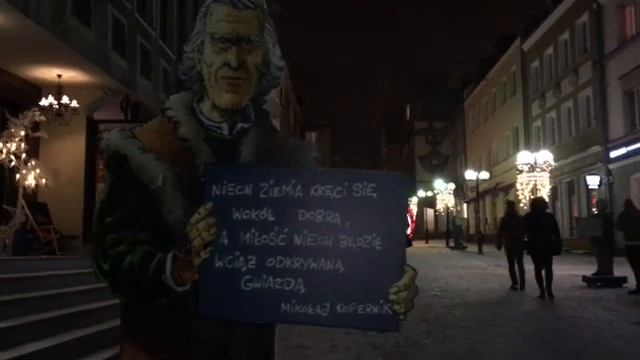 NIECH ZIEMIA KRĘCI SIĘ
WOKÓŁ DOBRA,
A MIŁOŚĆ NIECH BĘDZIE
WCIĄŻ ODKRYWANĄ
GWIAZDĄ
MIKOŁAJ KOPERNIK